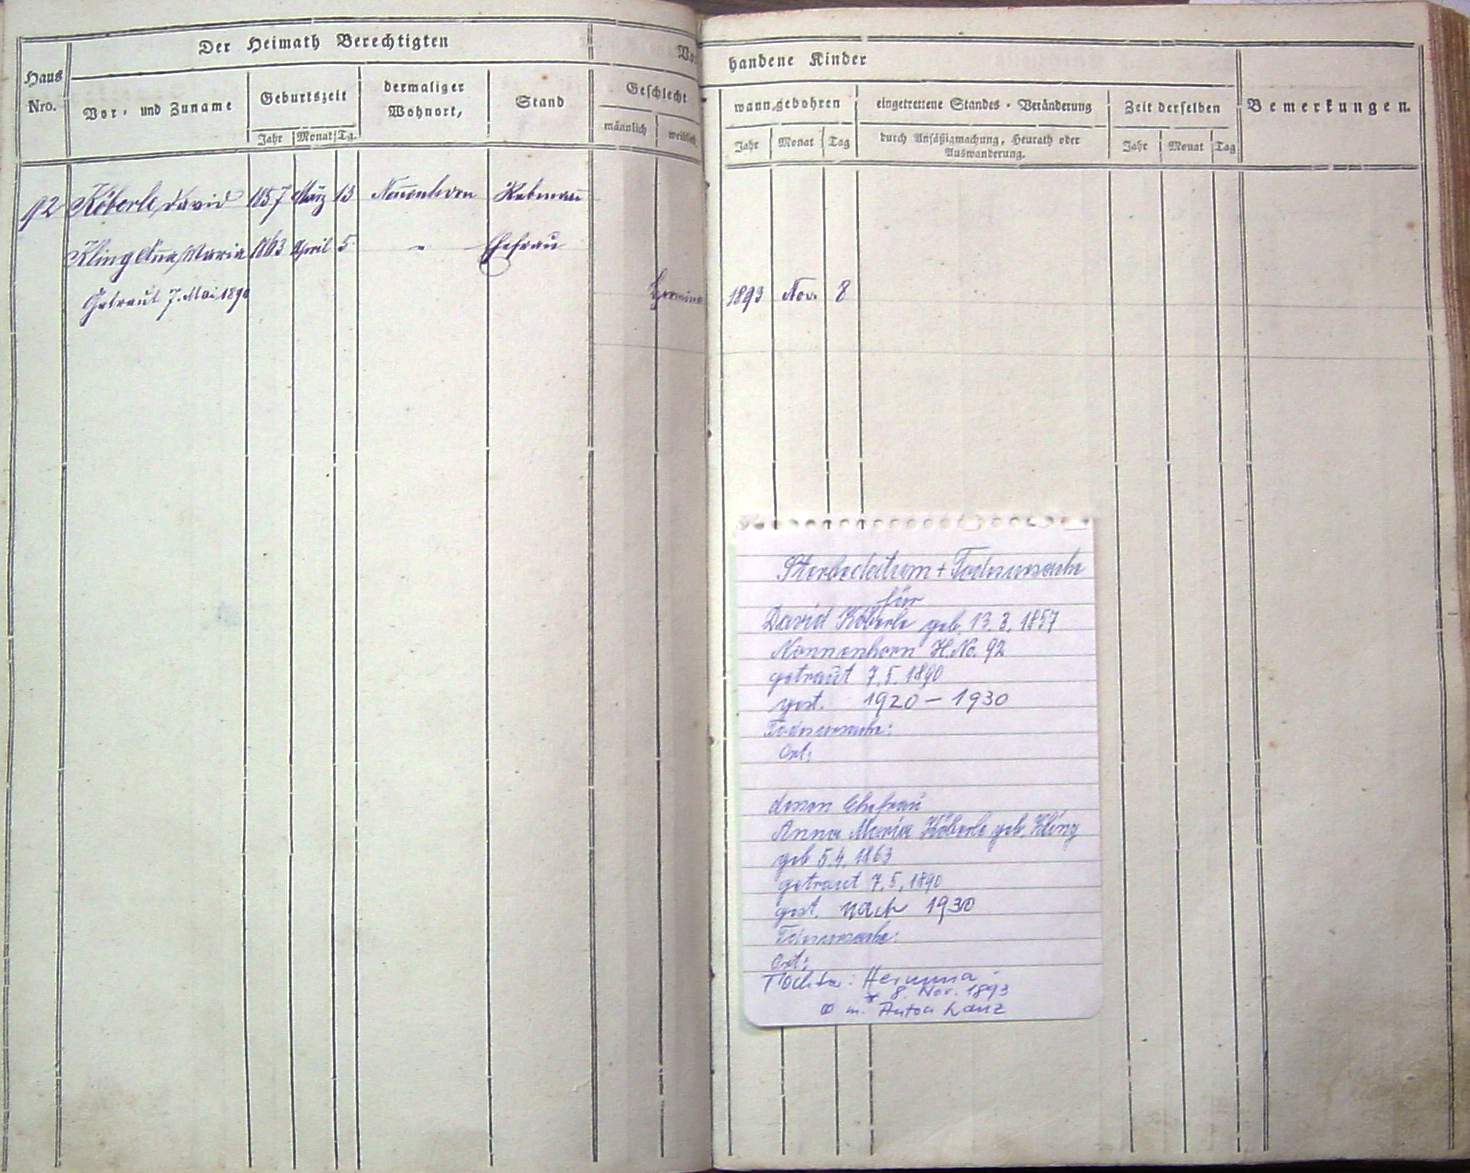 Der Heimath Berechtigten
Haus Nro.
Vor- und Zuname
Geburtszeit
Jahr Monat Tg.
dermaliger Wohnort,
Stand
Vorhandene Kinder
Geschlecht
männlich weiblich
wann gebohren
Jahr Monat Tag
eingetrettene Standes-Veränderung
durch Ansäßigmachung, Heurath oder
Auswanderung.
Zeit derselben
Jahr Monat Tag
Bemerkungen.
92 Köberle, David 1857 März 13 Nonnenhorn Rebmann
Kling Anna Maria 1863 April 5 " Ehefrau
Getraut 7. Mai 1890
Hermina 1893 Nov. 8
Sterbedatum + Todesursache
für
David Köberle geb. 13.3.1857
Nonnenhorn H.No. 92
getraut 7.5.1890
gest. 1920 – 1930
Todesursache:
Ort:
dessen Ehefrau
Anna Maria Köberle geb. Kling
geb 5.4.1863
getraut 7.5.1890
gest. nach 1930
Todesursache:
Ort:
Tochter: Hermina
* 8. Nov. 1893
⚭ m. Anton Lanz